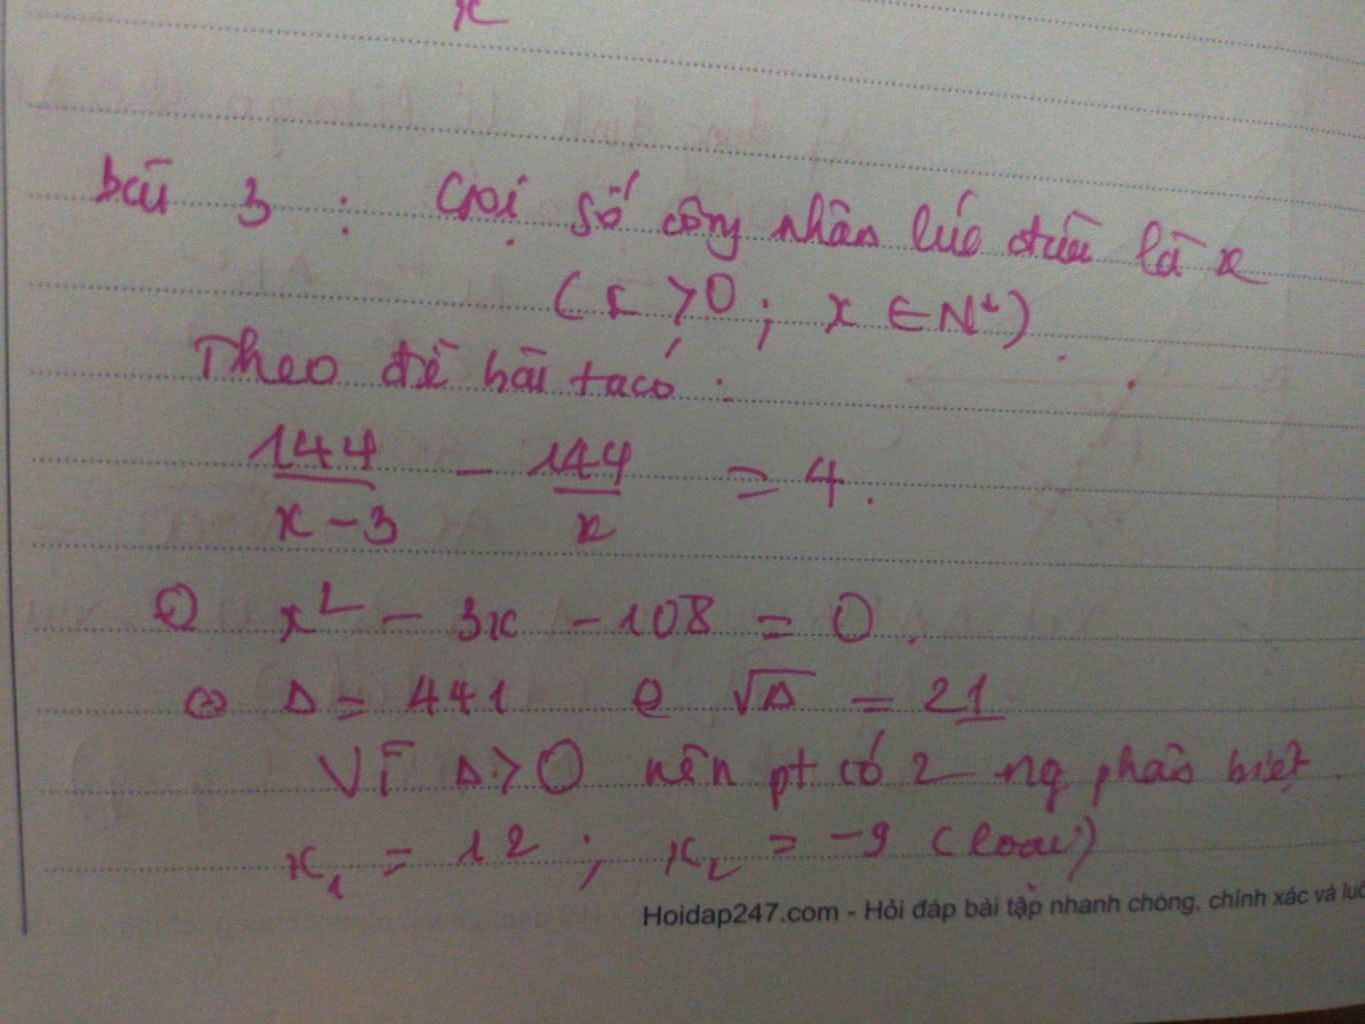 x
bài 3 : Gọi số công nhân lúc đầu là x
(x > 0 ; x ∈ N*).
Theo đề bài ta có :
144/(x - 3) - 144/x = 4.
⇔ x² - 3x - 108 = 0.
⇔ Δ = 441 ⇔ √Δ = 21
Vì Δ > 0 nên pt có 2 ng phân biệt.
x₁ = 12 ; x₂ = -9 (loại)
Hoidap247.com - Hỏi đáp bài tập nhanh chóng, chính xác và